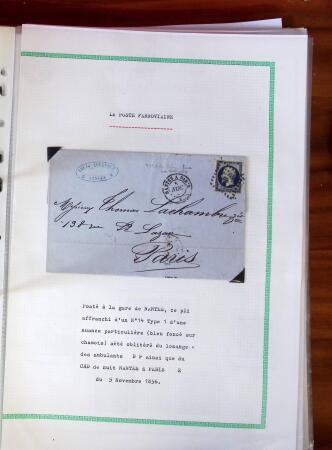 LA POSTE FERROVIAIRE
NANTES A PARIS
NOV.
Messieurs Thomas Lachambre & Cie
138 rue St Lazare
Paris
Posté à la gare de NANTES, ce pli
affranchi d'un N°14 Type 1 d'une
nuance particulière (bleu foncé sur
chamois) aété oblitéré du losange
des ambulants  N P ainsi que du
CAD de nuit NANTES A PARIS  2
du 3 Novembre 1856.